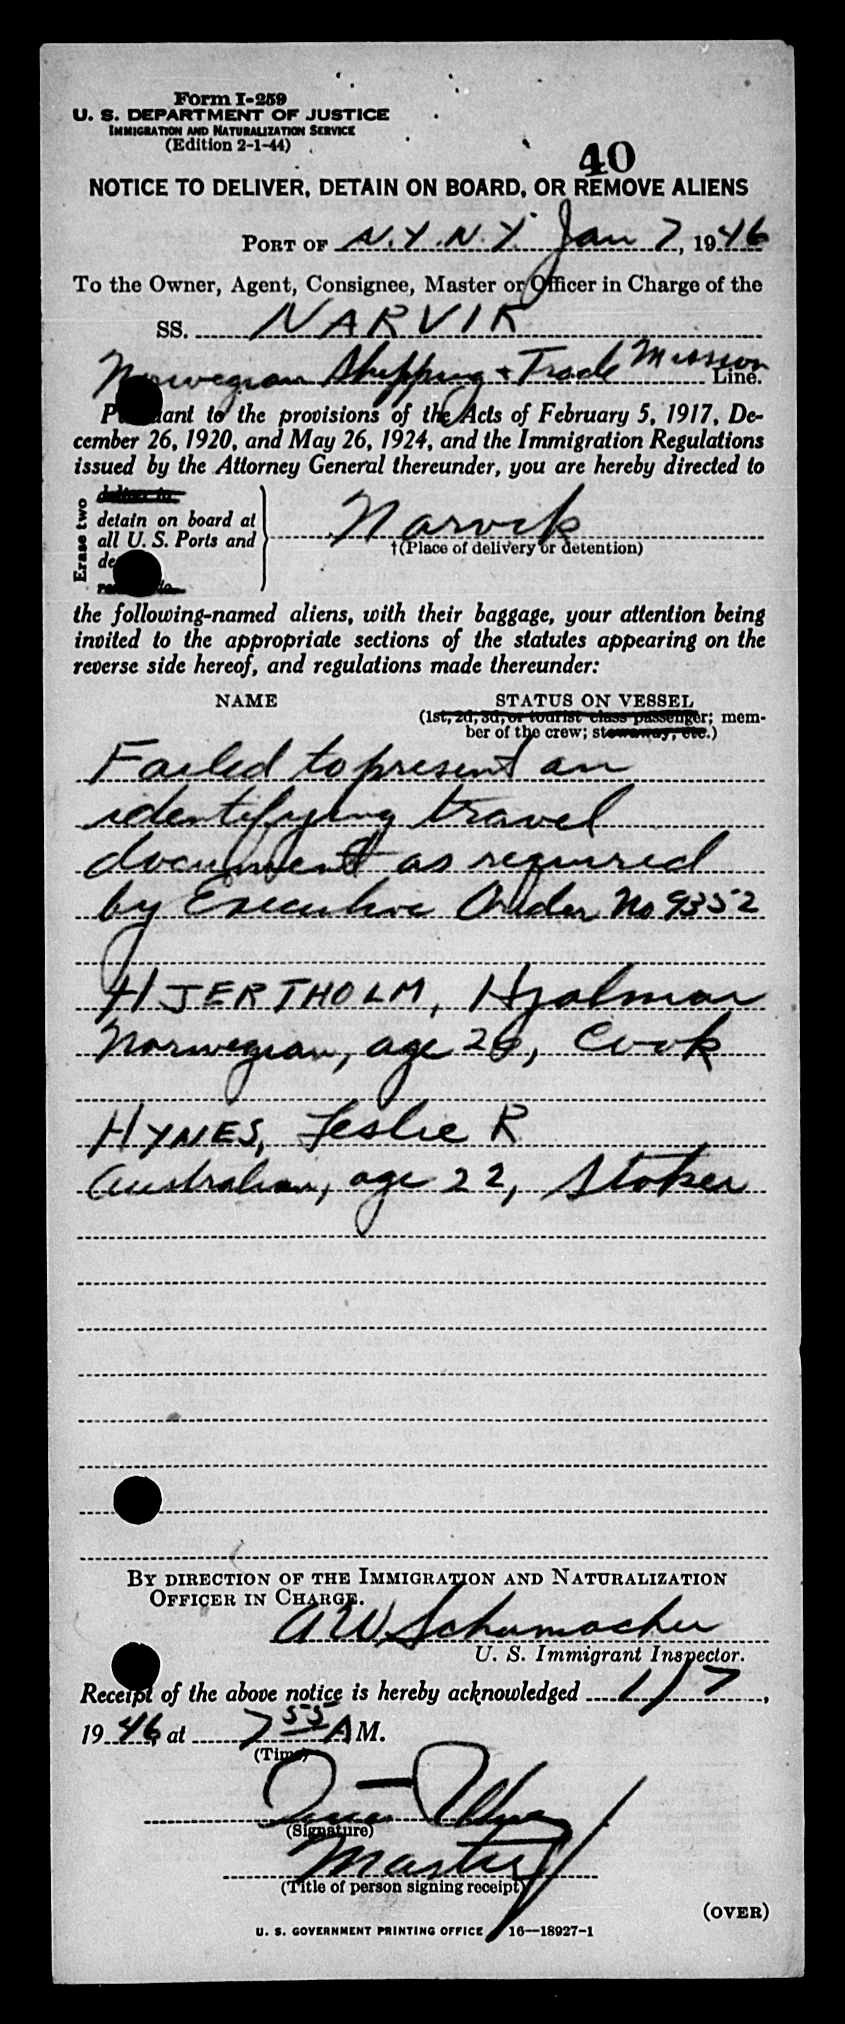 Form I-259
U. S. DEPARTMENT OF JUSTICE
IMMIGRATION AND NATURALIZATION SERVICE
(Edition 2-1-44)
40
NOTICE TO DELIVER, DETAIN ON BOARD, OR REMOVE ALIENS
PORT OF N.Y. N.Y. Jan 7, 1946
To the Owner, Agent, Consignee, Master or Officer in Charge of the
SS. NARVIK
Norwegian Shipping & Trade Mission Line.
Pursuant to the provisions of the Acts of February 5, 1917, De-
cember 26, 1920, and May 26, 1924, and the Immigration Regulations
issued by the Attorney General thereunder, you are hereby directed to
Erase two
deliver to
detain on board at
all U. S. Ports and
Narvik
†(Place of delivery or detention)
the following-named aliens, with their baggage, your attention being
invited to the appropriate sections of the statutes appearing on the
reverse side hereof, and regulations made thereunder:
NAME STATUS ON VESSEL
(1st, 2d, 3d, or tourist class passenger; mem-
ber of the crew; stowaway, etc.)
Failed to present an
identifying travel
document as required
by Executive Order No 9352
HJERTHOLM, Hjalmar
Norwegian, age 26, Cook
HYNES, Leslie R
Australian, age 22, Stoker
BY DIRECTION OF THE IMMIGRATION AND NATURALIZATION
OFFICER IN CHARGE.
AW Schumacher
U. S. Immigrant Inspector.
Receipt of the above notice is hereby acknowledged 1/7,
1946, at 7 55 A M.
(Time)
(Signature)
Master
(Title of person signing receipt)
(OVER)
U. S. GOVERNMENT PRINTING OFFICE 16—18927-1